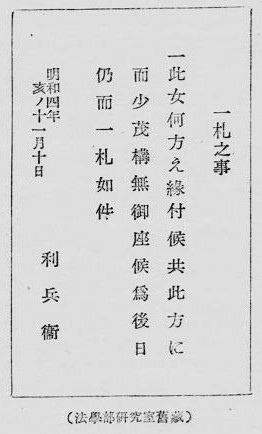 一札之事
一此女何方え緣付候共此方に
而少茂構無御座候爲後日
仍而一札如件
明和四年
亥ノ十一月十日
利兵衞
(法學部硏究室舊藏)